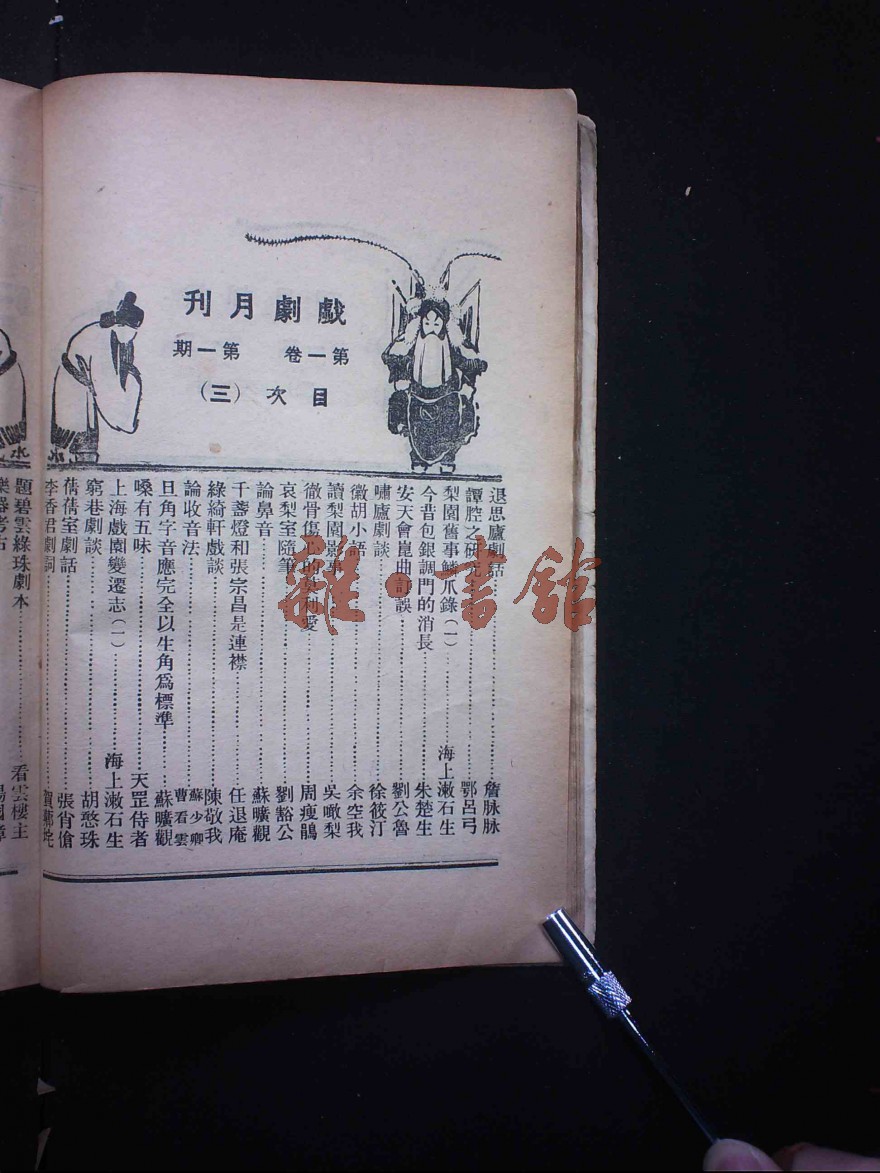 戲劇月刊
第一卷 第一期
目次(三)
退思廬劇話 詹脉脉
譚腔之研究 鄂呂弓
梨園舊事鱗爪錄(一) 海上漱石生
今昔包銀調門的消長 朱楚生
安天會崑曲訂誤 劉公魯
嘯廬劇談 徐筱汀
徽胡小語 余空我
讀梨園影事 吳噉梨
徹骨傷心的 利愛 周瘦鵑
哀梨室隨筆 劉豁公
論鼻音 蘇曠觀
千盞燈和張宗昌是連襟 任退庵
綠綺軒戲談 陳敬我
論收音法 蘇少卿 曹看雲
旦角字音應完全以生角爲標準 蘇曠觀
嗓有五味 天罡侍者
上海戲園變遷志(一) 海上漱石生
窮巷劇談 胡憨珠
蒨蒨室劇話 張肖傖
李香君劇詞
題碧雲綠珠劇本 看雲樓主
樂器考古
雜·書館